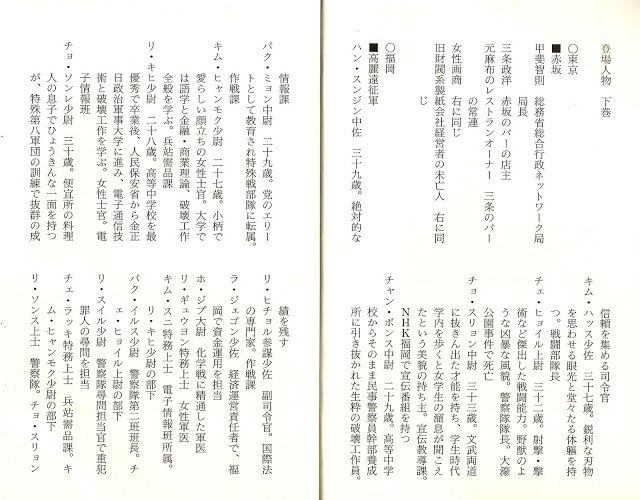 登場人物 下巻
〇東京
■赤坂
甲斐智則 総務省総合行政ネットワーク局
局長
三条政洋 赤坂のバーの店主
元麻布のレストランオーナー 三条のバー
の常連
女性画商 右に同じ
旧財閥系製紙会社経営者の未亡人 右に同
じ
〇福岡
■高麗遠征軍
ハン・スンジン中佐 三十九歳。絶対的な
信頼を集める司令官
キム・ハッス少佐 三十七歳。鋭利な刃物
を思わせる眼光と堂々たる体軀を持
つ。戦闘部隊長
チェ・ヒョイル上尉 三十二歳。射撃・撃
術など傑出した戦闘能力。野獣のよ
うな凶暴な風貌。警察隊隊長。大濠
公園事件で死亡
チョ・スリョン中尉 三十三歳。文武両道
に抜きん出た才能を持ち、学生時代
学内を歩くと女学生の溜息が聞こえ
たという美貌の持ち主。宣伝教導課。
NHK福岡で宣伝番組を持つ
チャン・ボンス中尉 二十九歳。高等中学
校からそのまま民事警察員幹部養成
所に引き抜かれた生粋の破壊工作員。
情報課
パク・ミョン中尉 二十九歳。党のエリー
トとして教育され特殊戦部隊に転属。
作戦課
キム・ヒャンモク少尉 二十七歳。小柄で
愛らしい顔立ちの女性士官。大学で
は語学と金融・商業理論、破壊工作
全般を学ぶ。兵站需品課
リ・キヒ少尉 二十八歳。高等中学校を最
優秀で卒業後、人民保安省から金正
日政治軍事大学に進み、電子通信技
術と破壊工作を学ぶ。女性士官。電
子情報班
チョ・ソンレ少尉 三十歳。便宜所の料理
人の息子でひょうきんな一面を持つ
が、特殊第八軍団の訓練で抜群の成
績を残す
リ・ヒチョル参謀少佐 副司令官。国際法
の専門家。作戦課
ラ・ジェゴン少佐 経済運営責任者で、福
岡で資金運用を担当
ホ・ジブ大尉 化学戦に精通した軍医
リ・ギュウヨン特務上士 女性軍医
キム・スニ特務上士 電子情報班所属。
リ・キヒ少尉の部下
パク・イルス少尉 警察隊第二班班長。チ
ェ・ヒョイル上尉の部下
リ・スイル少尉 警察隊尋問担当官で重犯
罪人の尋問を担当
チェ・ラッキ特務上士 兵站需品課。キ
ム・ヒャンモク少尉の部下
リ・ソンス上士 警察隊。チョ・スリョン